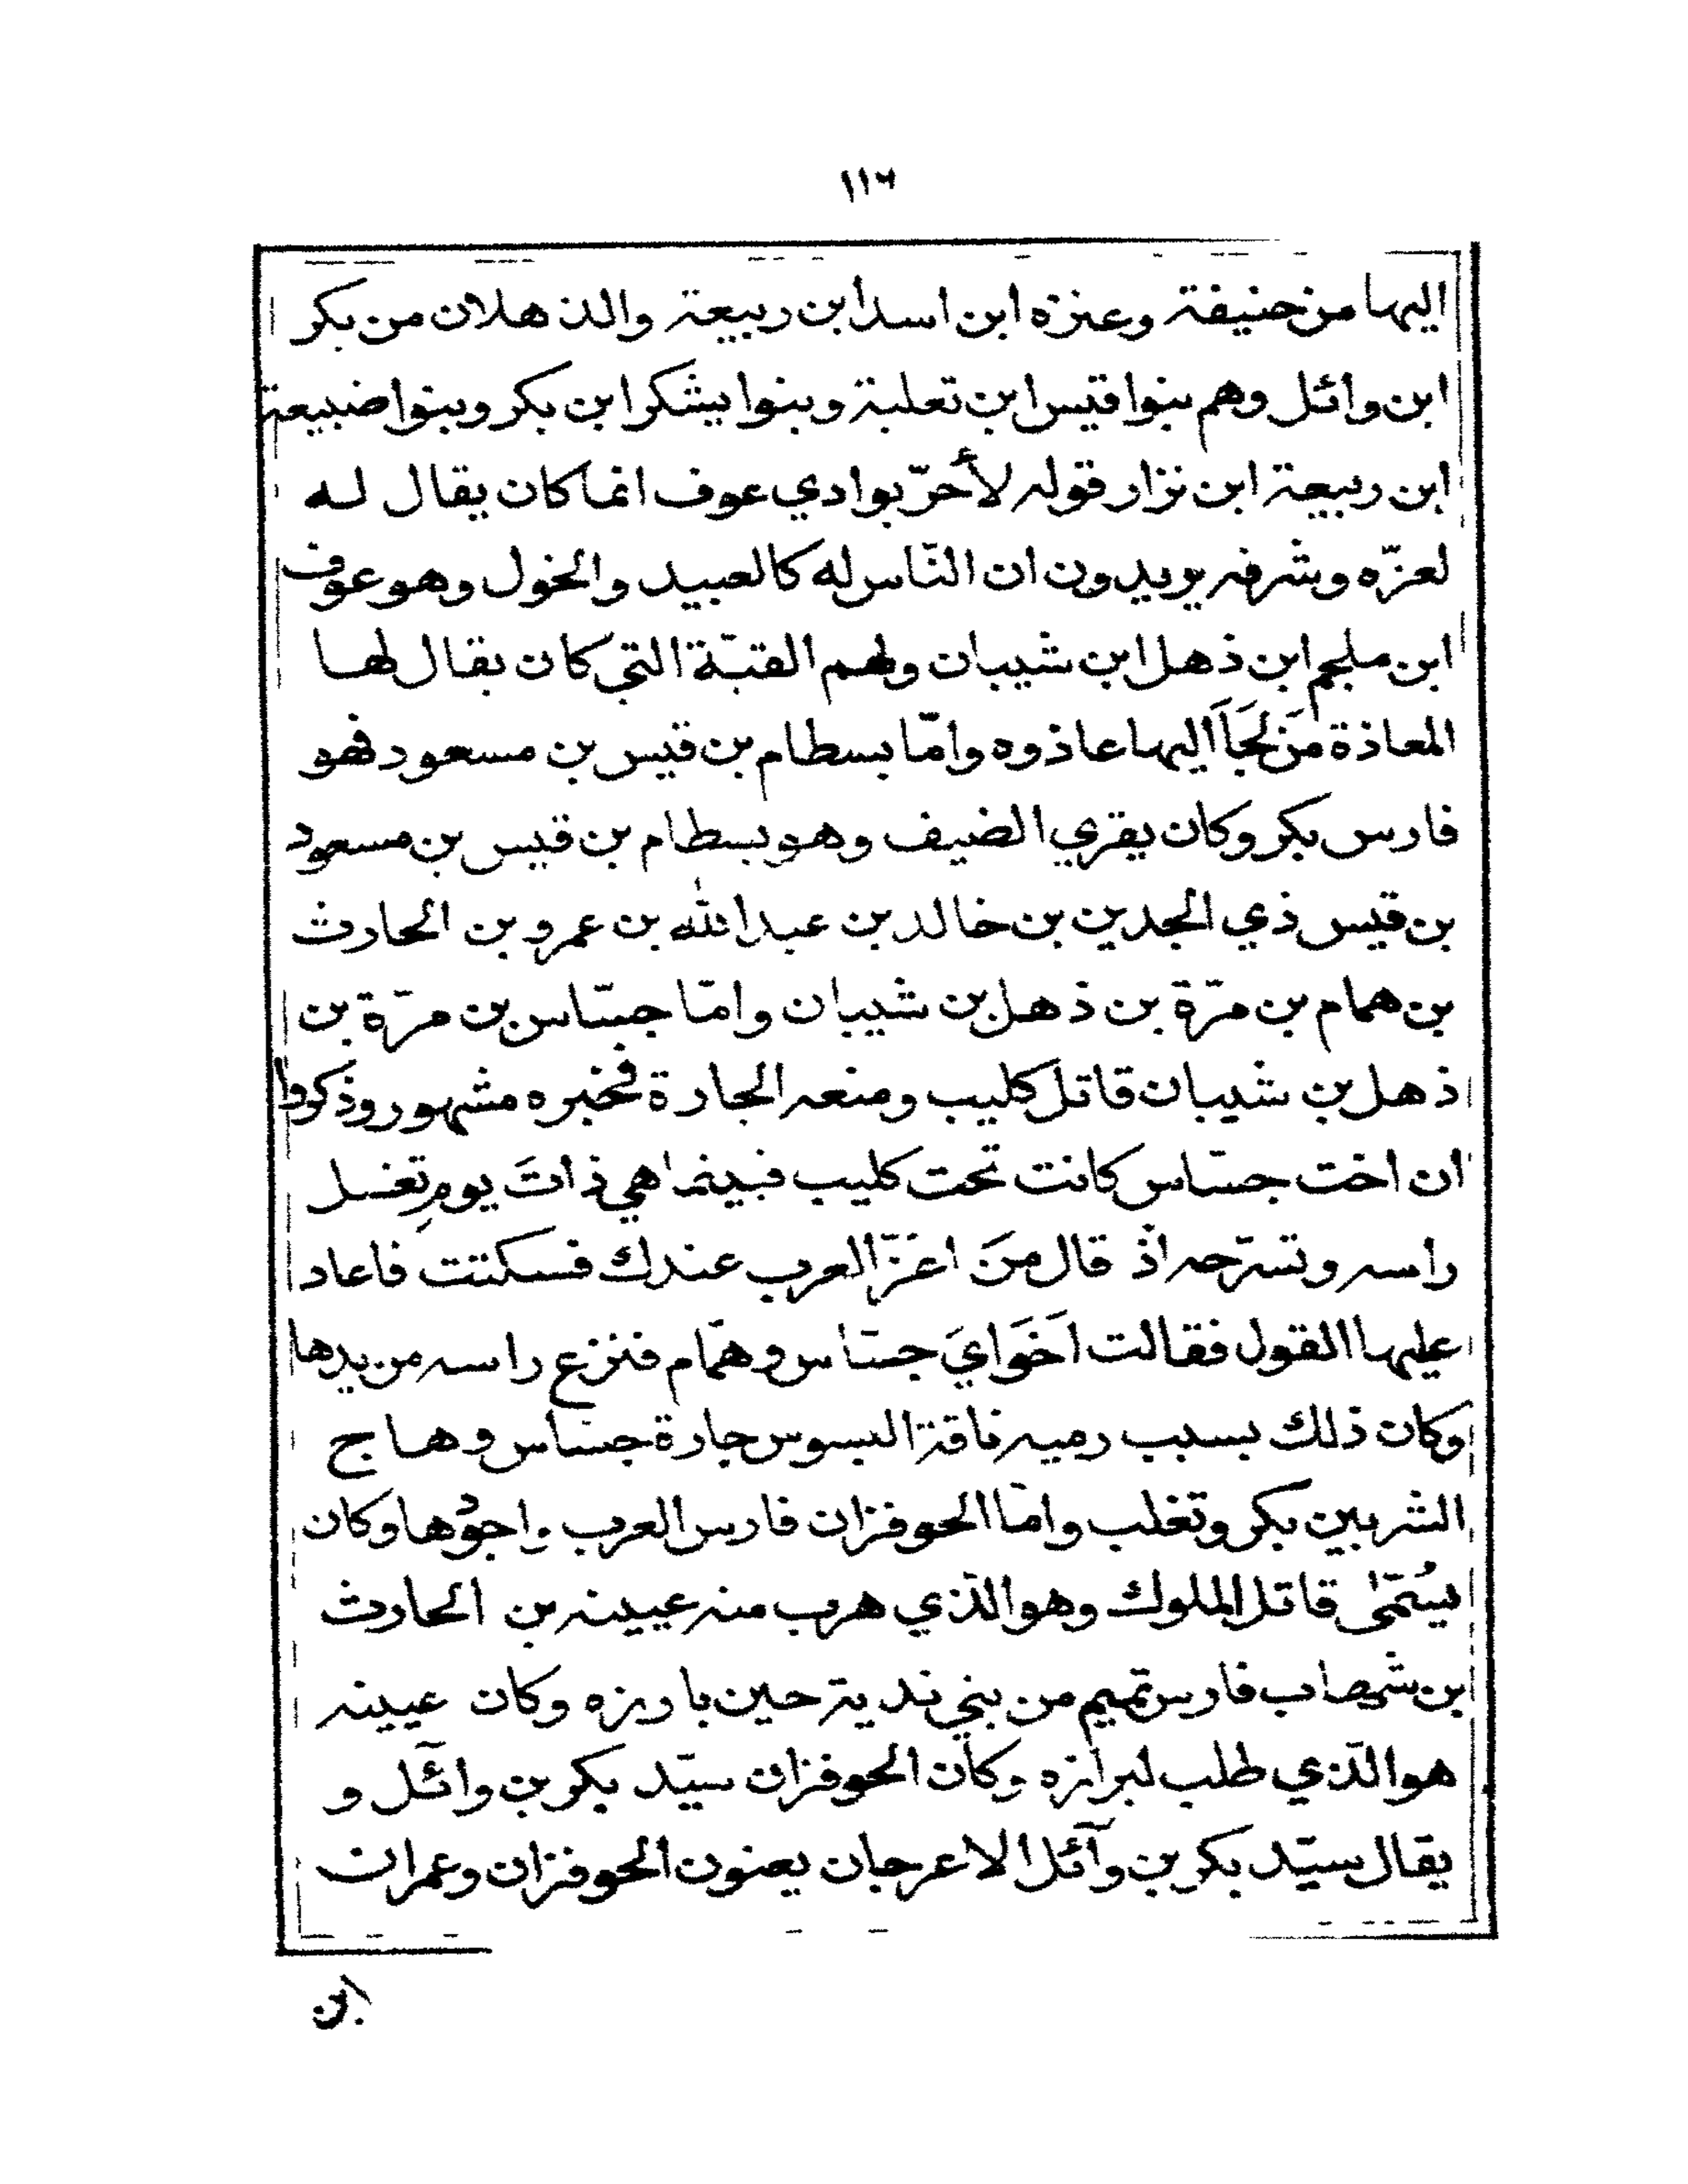 ١١٦
اليها من حنيفة وعنزه ابن اسد ابن ربيعة والذهلان من بكر
ابن وائل وهم بنوا قيس ابن ثعلبة وبنوا يشكر ابن بكر وبنوا ضبيعة
ابن ربيعة ابن نزار قوله لأحرّ بوادي عوف انما كان يقال له
لعزّه وشرفه يريدون ان النّاس له كالعبيد والخول وهو عوف
ابن ملجم ابن ذهل ابن شيبان ولهم القبّة التي كان يقال لها
المعاذة مَن لَجَأَ اليها عاذوه وامّا بسطام بن قيس بن مسعود فهو
فارس بكر وكان يقري الضيف وهو بسطام بن قيس بن مسعود
بن قيس ذي الجدين بن خالد بن عبد الله بن عمرو بن الحارث
بن همام بن مرّة بن ذهل بن شيبان وامّا جسّاس بن مرّة بن
ذهل بن شيبان قاتل كليب ومنعه الجارة فخبره مشهور وذكروا
ان اخت جسّاس كانت تحت كليب فبينما هي ذاتَ يومٍ تغسل
راسه وتسرّحه اذ قال مَن اعَزّ العرب عندك فسكتت فاعاد
عليها القول فقالت اَخَوَايَ جسّاس وهمّام فنزع راسه من يدها
وكان ذلك بسبب رميه ناقة البسوس جارة جسّاس وهاج
الشر بين بكر وتغلب وامّا الحوفزان فارس العرب واجودها وكان
يسُمّى قاتل الملوك وهو الذّي هرب منه عيينه بن الحارث
ابن شهاب فارس تميم من بني حين بارزه وكان عيينه
هو الذّي طلب لبرازه وكان الحوفزان سيّد بكر بن وائل و
يقال سيّد بكر بن وآئل الاعرجان يعنون الحوفزان وعمران
ابن